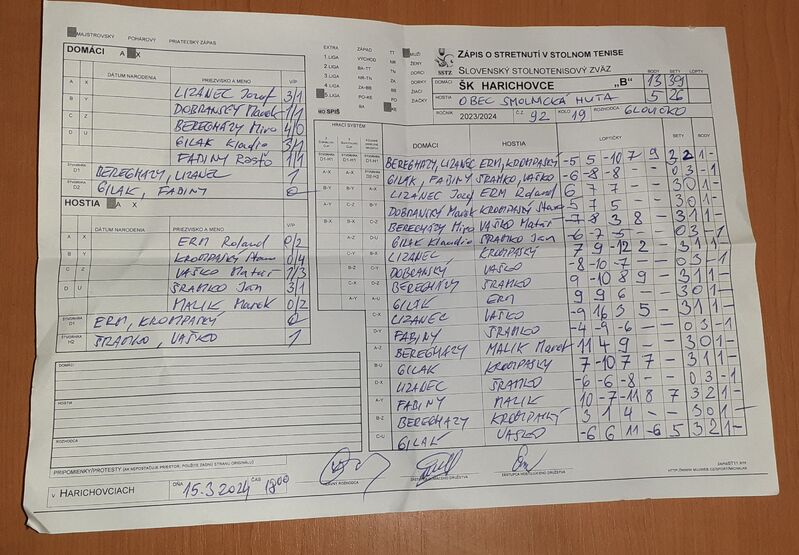 MAJSTROVSKÝ POHÁROVÝ PRIATEĽSKÝ ZÁPAS
DOMÁCI A X
DÁTUM NARODENIA PRIEZVISKO A MENO V/P
A X LIZANEC Jozef 3/1
B Y DOBRANSKÝ Marek 1/1
C Z BEREGHÁZY Miro 4/0
D U GILAK Klaudio 3/1
FABINY Rasťo 1/1
ŠTVORHRA D1 BEREGHAZY, LIZANEC 1
ŠTVORHRA D2 GILAK, FABINY 0
HOSTIA A X
DÁTUM NARODENIA PRIEZVISKO A MENO V/P
A X ERM Roland 0/2
B Y KROMPASKÝ 0/4
C Z VAŠKO Matúš 1/3
D U ŠRAMKO Jan 3/1
MALIK Marek 0/2
ŠTVORHRA D1 ERM, KROMPASKÝ 0
ŠTVORHRA H2 ŠRAMKO, VAŠKO 1
DOMÁCI
HOSTIA
ROZHODCA
PRIPOMIENKY/PROTESTY (AK NEPOSTAČUJE PRIESTOR, POUŽITE ZADNÚ STRANU ORIGINÁLU)
V HARICHOVCIACH DŇA 15.3.2024 ČAS 18:00
EXTRA ZÁPAD TT MUŽI
1 LIGA VÝCHOD PP ŽENY
2 LIGA BA-TT
3 LIGA NR-TN
4 LIGA ZA-BB
5 LIGA PO-KE ŽIACI
BA KE ŽIAČKY
MO SPIŠ
SSTZ
ZÁPIS O STRETNUTÍ V STOLNOM TENISE
SLOVENSKÝ STOLNOTENISOVÝ ZVÄZ
BODY SETY LOPTY
DOMÁCI ŠK HARICHOVCE „B" 13 39
HOSTIA OBEC SMOLNICKÁ HUTA 5 26
ROČNÍK 2023/2024 Č.Z. 92 KOLO 19 ROZHODCA
HRACÍ SYSTÉM
DOMÁCI HOSTIA LOPTIČKY SETY BODY
D1-H1 BEREGHÁZY, LIZANEC ERM, KROMPASKÝ -5 5 -10 7 9 3 2 1 -
GILAK, FABINY ŠRAMKO, VAŠKO -6 -8 -8 - - 0 3 - 1
A-X LIZANEC Jozef ERM Roland 6 7 7 - - 3 0 1 -
B-Y DOBRANSKÝ Marek KROMPASKÝ 5 7 5 - - 3 0 1 -
BEREGHÁZY Miro VAŠKO Matúš -7 8 3 8 - 3 1 1 -
GILAK Klaudio ŠRAMKO Jan -6 -7 -5 - - 0 3 - 1
LIZANEC KROMPASKÝ 7 9 -12 2 - 3 1 1 -
DOBRANSKÝ VAŠKO -8 -10 -7 - - 0 3 - 1
BEREGHÁZY ŠRAMKO 9 -10 8 9 - 3 1 1 -
GILAK ERM 9 9 6 - - 3 0 1 -
C-X LIZANEC VAŠKO -9 16 3 5 - 3 1 1 -
D-Y FABINY ŠRAMKO -4 -9 -6 - - 0 3 - 1
A-Z BEREGHAZY MALIK Marek 11 4 9 - - 3 0 1 -
B-U GILAK KROMPASKÝ 7 -10 7 7 - 3 1 1 -
D-X LIZANEC ŠRAMKO -6 -6 -8 - - 0 3 - 1
A-Y FABINY MALIK 10 -7 -11 8 7 3 2 1 -
B-Z BEREGHAZY KROMPASKÝ 3 1 4 - - 3 0 1 -
C-U GILAK VAŠKO -6 6 11 -6 5 3 2 1 -
HLAVNÝ ROZHODCA ZÁSTUPCA DOMÁCEHO DRUŽSTVA ZÁSTUPCA HOSŤUJÚCEHO DRUŽSTVA